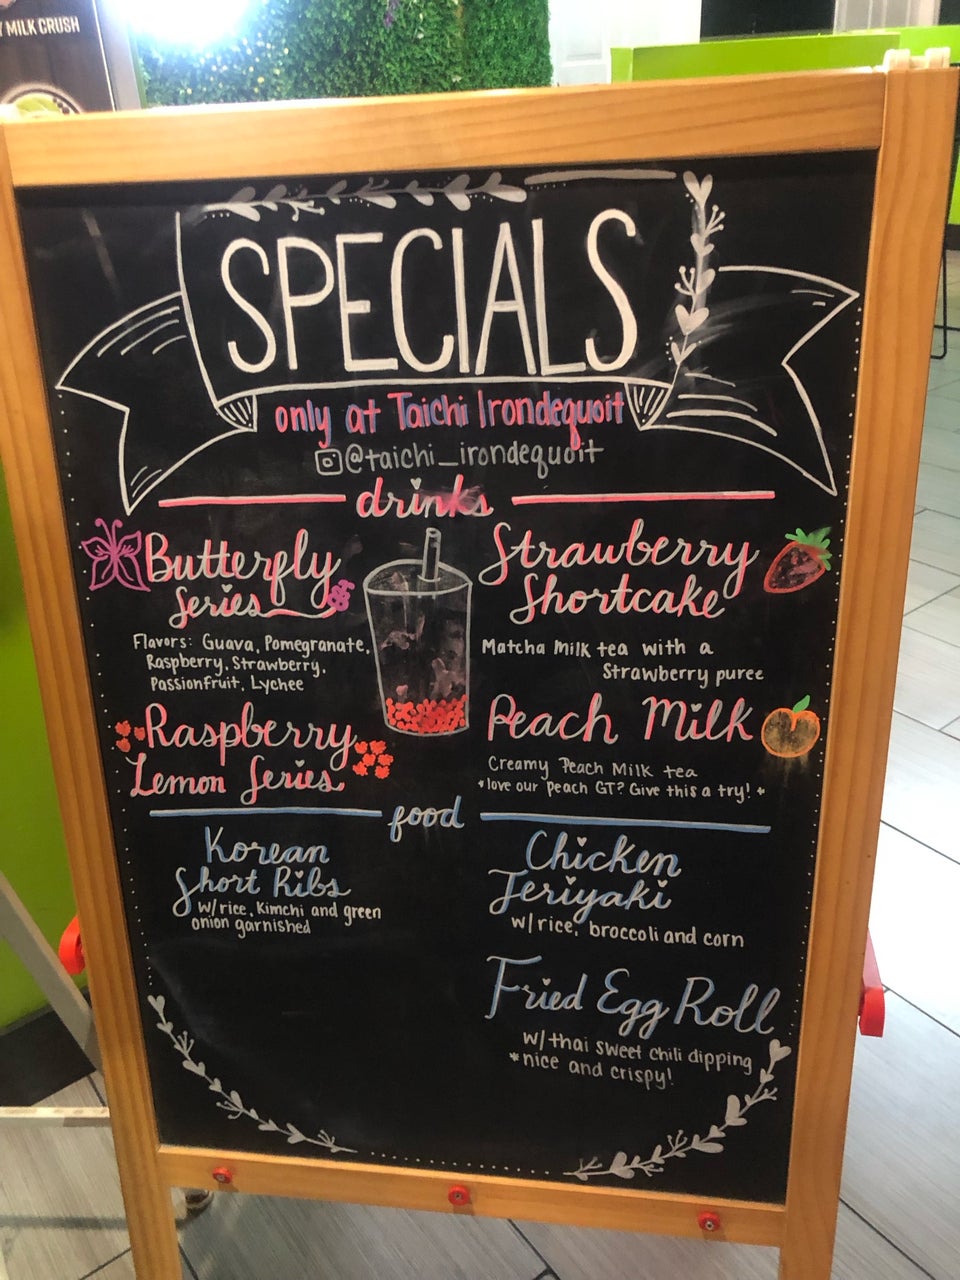 Y MILK CRUSH
SPECIALS
only at Taichi Irondequoit
@taichi_irondequoit
drinks
Butterfly
Series
Flavors: Guava, Pomegranate,
Raspberry, Strawberry,
Passionfruit, Lychee
Raspberry
Lemon Series
Strawberry
Shortcake
Matcha Milk tea with a
Strawberry puree
Peach Milk
Creamy Peach Milk tea
*love our peach GT? Give this a try! *
food
Korean
Short Ribs
w/rice, Kimchi and green
onion garnished
Chicken
Teriyaki
w/rice, broccoli and corn
Fried Egg Roll
w/thai sweet chili dipping
*nice and crispy!